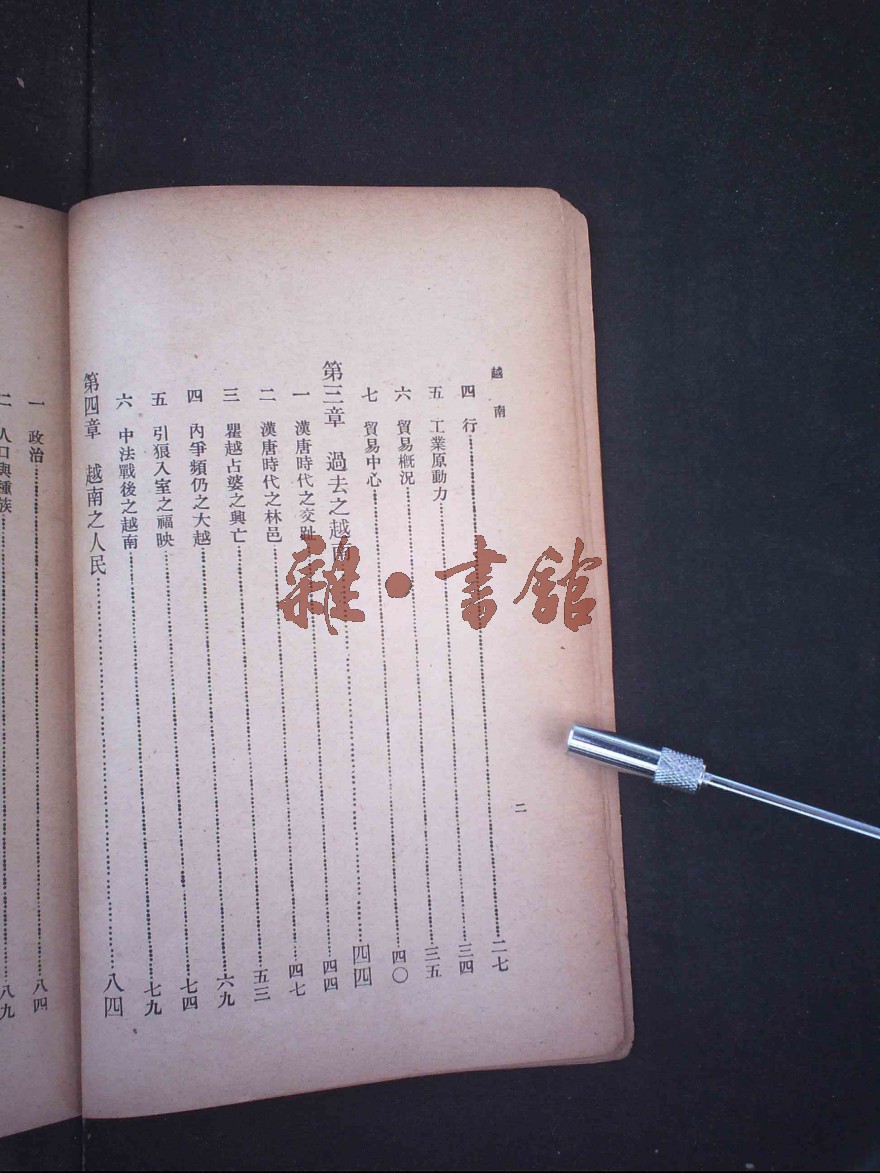 越南
二
四 行……二七
五 工業原動力……三四
六 貿易概況……三五
七 貿易中心……四〇
第三章 過去之越南……四四
一 漢唐時代之交趾……四四
二 漢唐時代之林邑……四七
三 瞿越占婆之興亡……五三
四 內爭頻仍之大越……六九
五 引狼入室之福映……七四
六 中法戰後之越南……七九
第四章 越南之人民……八四
一 政治……八四
二 人口與種族……八九
雜·書館